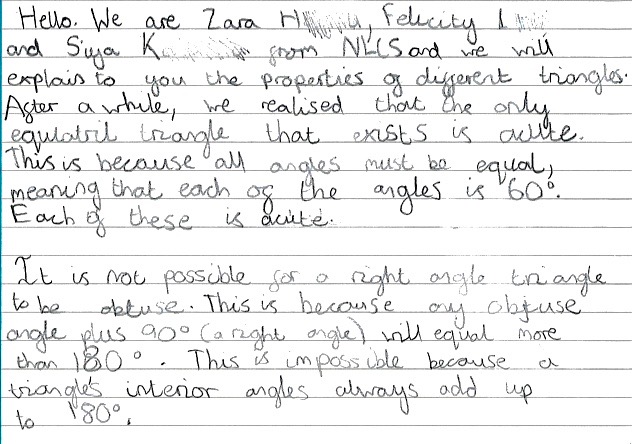 Hello. We are Zara H, Felicity L
and Siya K from NLCS and we will
explain to you the properties of different triangles.
After a while, we realised that the only
equlatril triangle that exists is acute.
This is because all angles must be equal,
meaning that each of the angles is 60°.
Each of these is acute.
It is not possible for a right angle triangle
to be obtuse. This is because any obtuse
angle plus 90° (a right angle) will equal more
than 180°. This is impossible because a
triangle's interior angles always add up
to 180°.